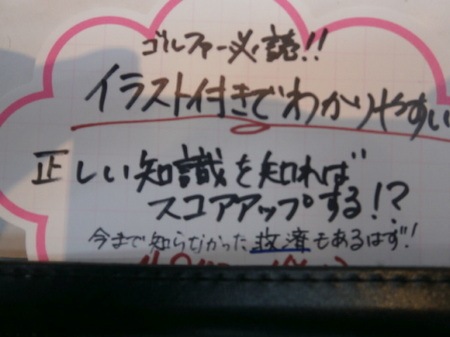 ゴルファー必読!!
イラスト付きでわかりやすい
正しい知識を知れば
スコアアップする!?
今まで知らなかった救済もあるはず!